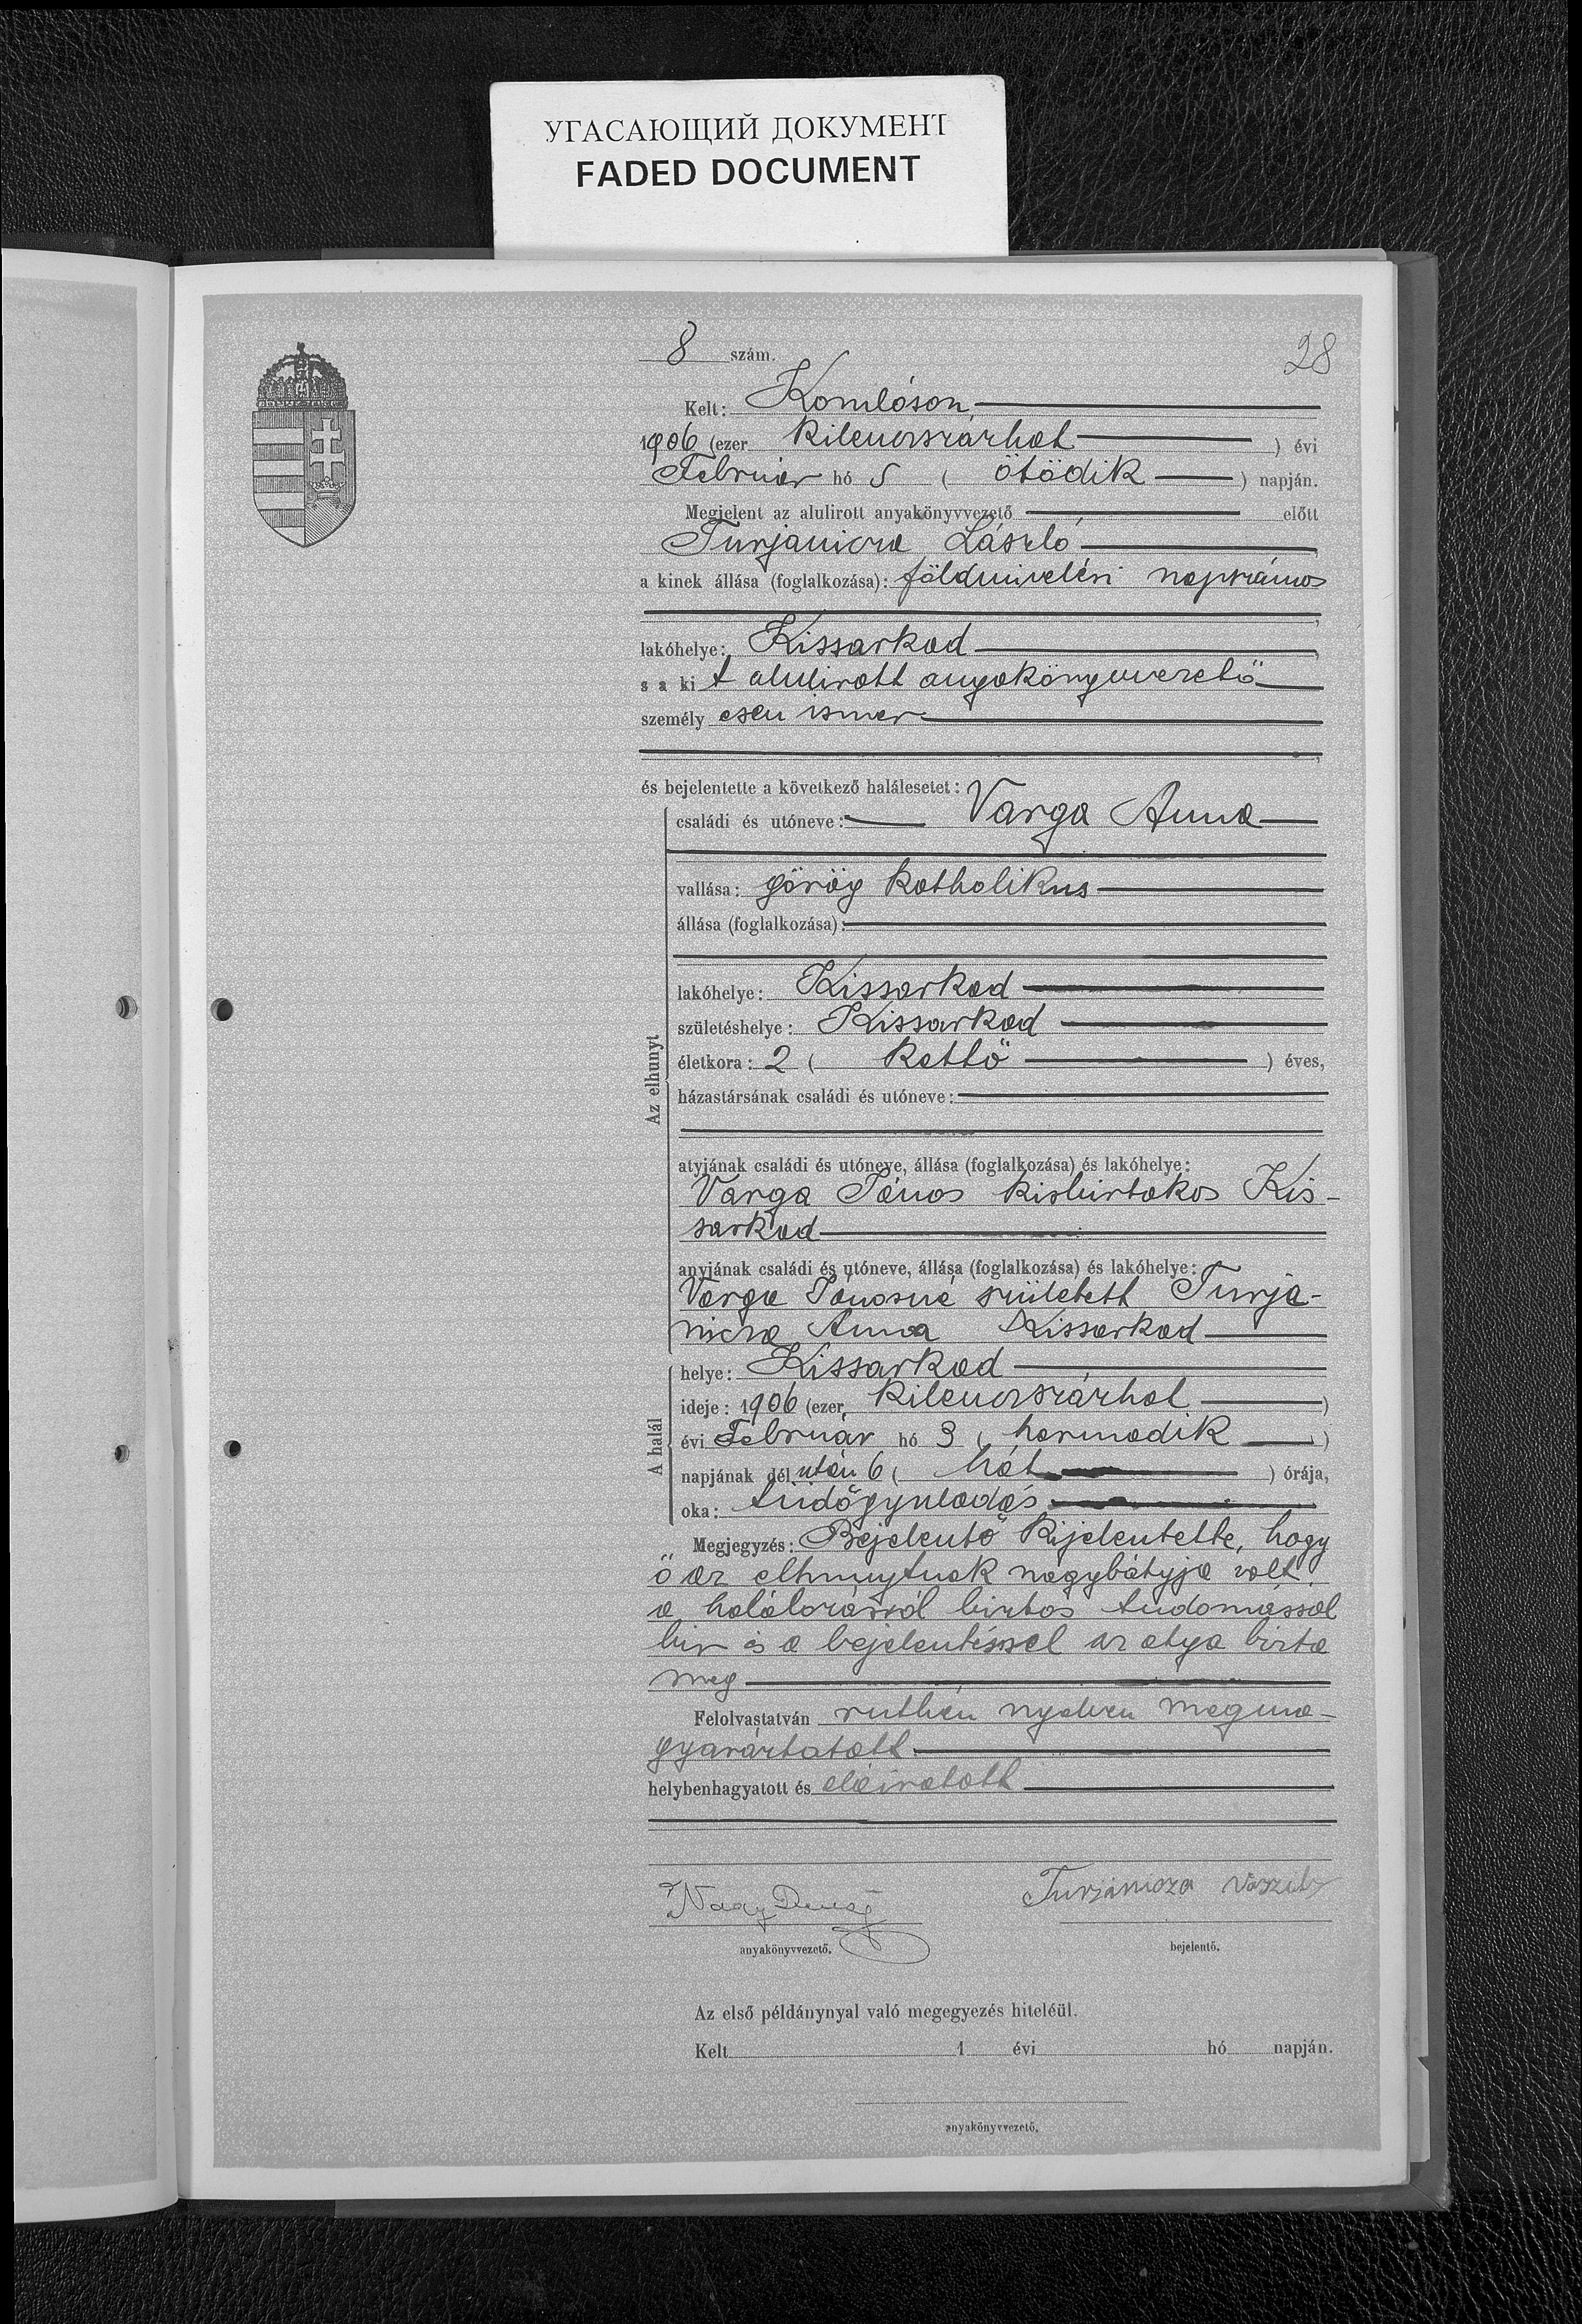 УГАСАЮЩИЙ ДОКУМЕНТ
FADED DOCUMENT
8 szám.
28
Kelt: Komlóson,
1906 (ezer kilenczszázhat ) évi
Február hó 5 ( ötödik ) napján.
Megjelent az alulirott anyakönyvvezető előtt
Turjanicza László,
a kinek állása (foglalkozása): földmivelési napszámos
lakóhelye: Kissarkad,
s a ki t alulirott anyakönyvvezető
személy esen ismer
és bejelentette a következő halálesetet:
családi és utóneve: Varga Anna
vallása: görög katholikus
állása (foglalkozása):
lakóhelye: Kissarkad
születéshelye: Kissarkad
életkora: 2 ( kettő ) éves,
házastársának családi és utóneve:
Az elhunyt
atyjának családi és utóneve, állása (foglalkozása) és lakóhelye:
Varga János kisbirtokos Kis-
sarkad
anyjának családi és utóneve, állása (foglalkozása) és lakóhelye:
Varga Jánosné született Turja-
nicza Anna Kissarkad
A halál
helye: Kissarkad
ideje: 1906 (ezer kilenczszázhat )
évi Február hó 3 ( harmadik )
napjának dél után 6 ( hat ) órája,
oka: tüdőgyuladás
Megjegyzés: Bejelentő kijelentette, hogy
ő az elhunytnak nagybátyja volt,
a halálozásról biztos tudomással
bir és a bejelentéssel az atya bizta
meg
Felolvastatván ruthén nyelven megma-
gyaráztatott
helybenhagyatott és aláiratott
Nagy Dezső
Turjanicza Vaszily
anyakönyvvezető.
bejelentő.
Az első példánynyal való megegyezés hiteléül.
Kelt 1 évi hó napján.
anyakönyvvezető.